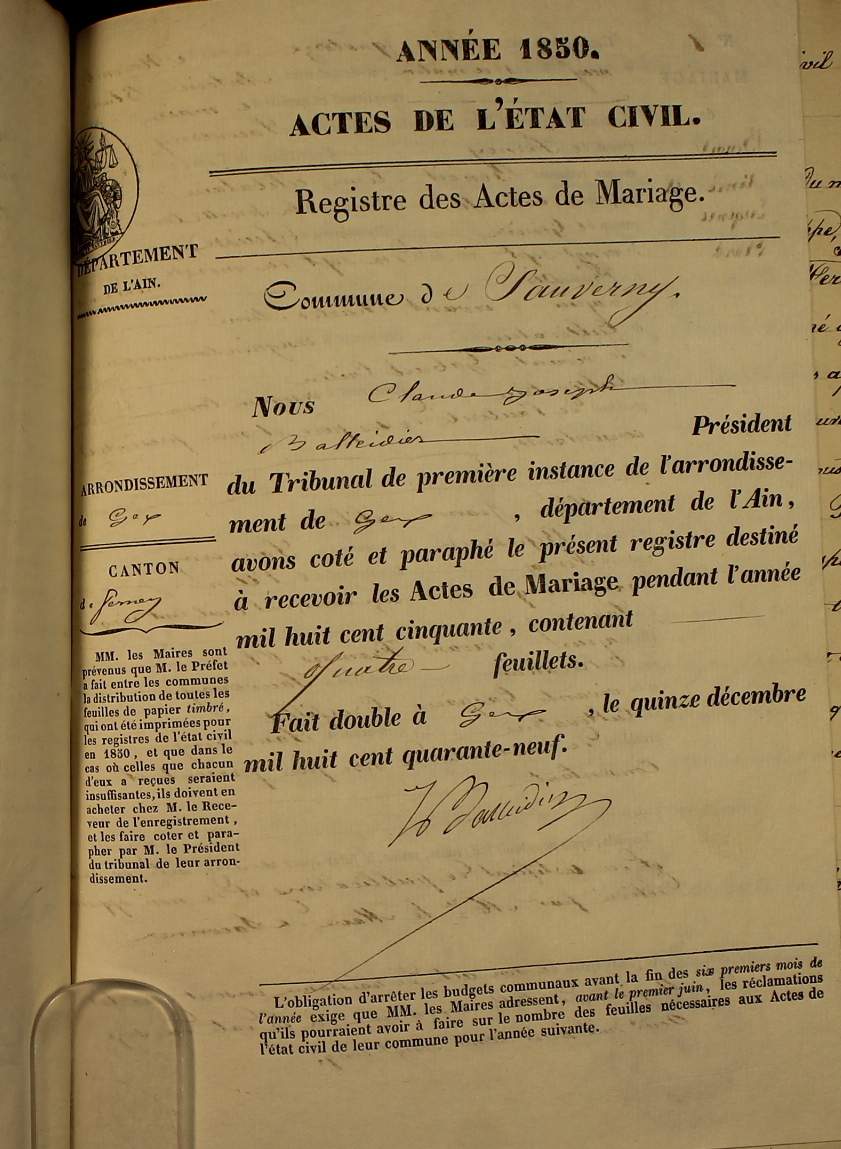 ANNÉE 1850.
ACTES DE L'ÉTAT CIVIL.
Registre des Actes de Mariage.
DÉPARTEMENT
DE L'AIN.
Commune de Sauverny.
Nous Claude Joseph
Balleidier Président
du Tribunal de première instance de l'arrondisse-
ment de Gex , département de l'Ain,
avons coté et paraphé le présent registre destiné
à recevoir les Actes de Mariage pendant l'année
mil huit cent cinquante, contenant
quatre feuillets.
Fait double à Gex , le quinze décembre
mil huit cent quarante-neuf.
Balleidier
ARRONDISSEMENT
de Gex
CANTON
de Ferney
MM. les Maires sont
prévenus que M. le Préfet
a fait entre les communes
la distribution de toutes les
feuilles de papier timbré,
qui ont été imprimées pour
les registres de l'état civil
en 1850, et que dans le
cas où celles que chacun
d'eux a reçues seraient
insuffisantes, ils doivent en
acheter chez M. le Rece-
veur de l'enregistrement,
et les faire coter et para-
pher par M. le Président
du tribunal de leur arron-
dissement.
L'obligation d'arrêter les budgets communaux avant la fin des six premiers mois de
l'année exige que MM. les Maires adressent, avant le premier juin, les réclamations
qu'ils pourraient avoir à faire sur le nombre des feuilles nécessaires aux Actes de
l'état civil de leur commune pour l'année suivante.